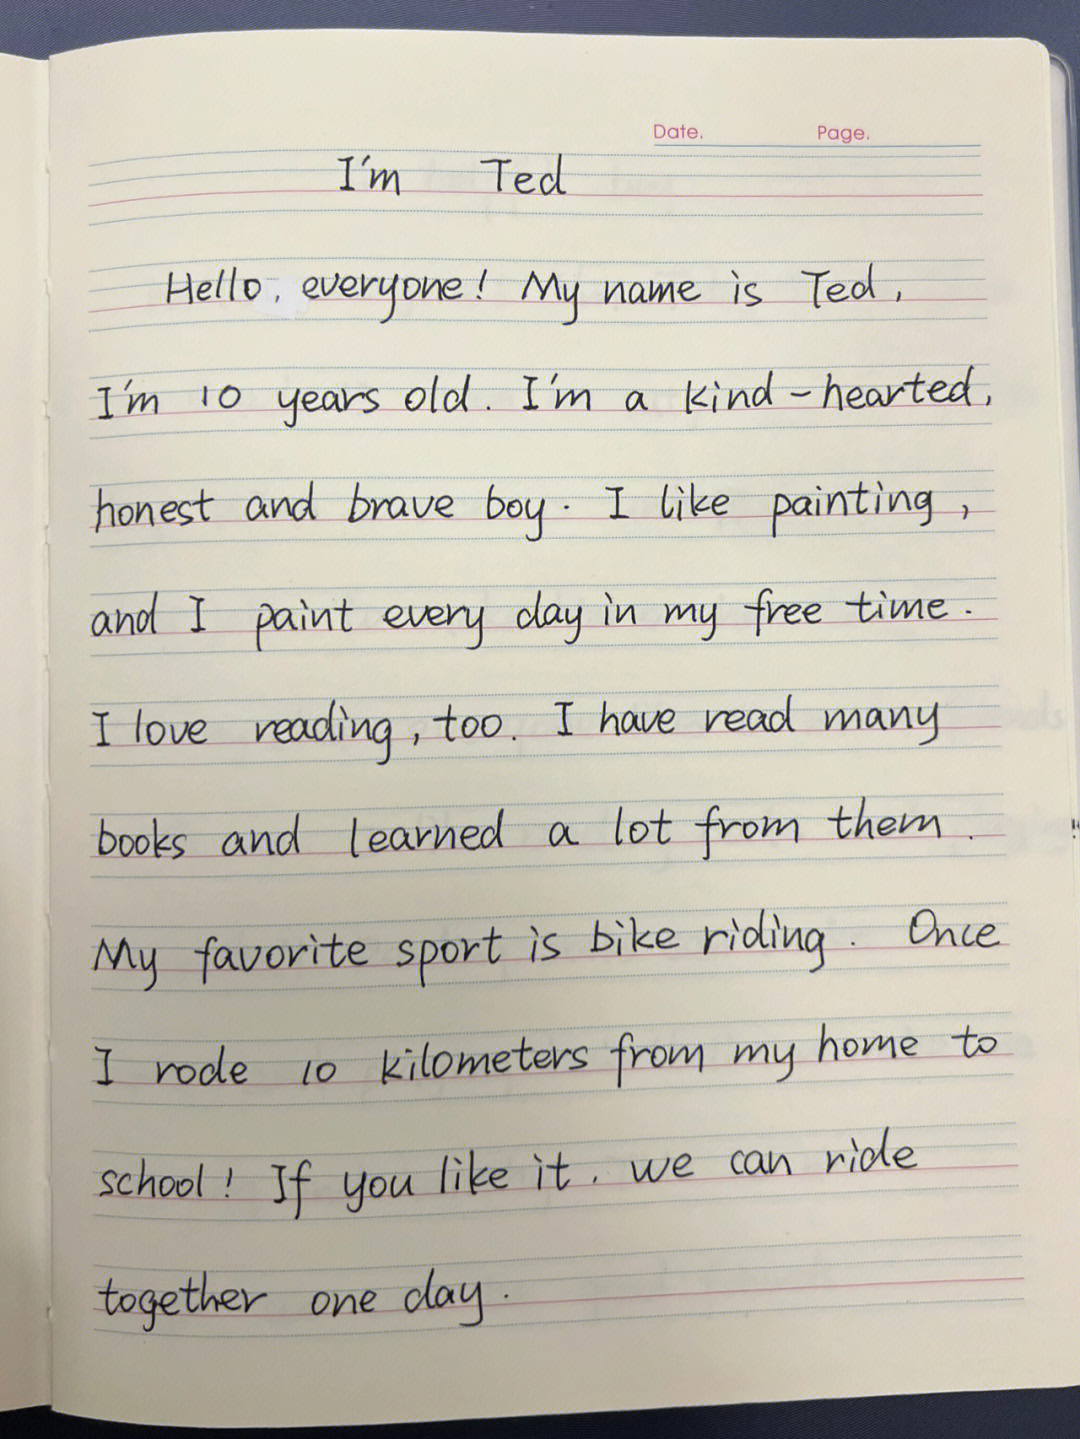 Date. Page.
I'm Ted
Hello, everyone! My name is Ted,
I'm 10 years old. I'm a kind-hearted,
honest and brave boy. I like painting,
and I paint every day in my free time.
I love reading, too. I have read many
books and learned a lot from them.
My favorite sport is bike riding. Once
I rode 10 kilometers from my home to
school! If you like it, we can ride
together one day.